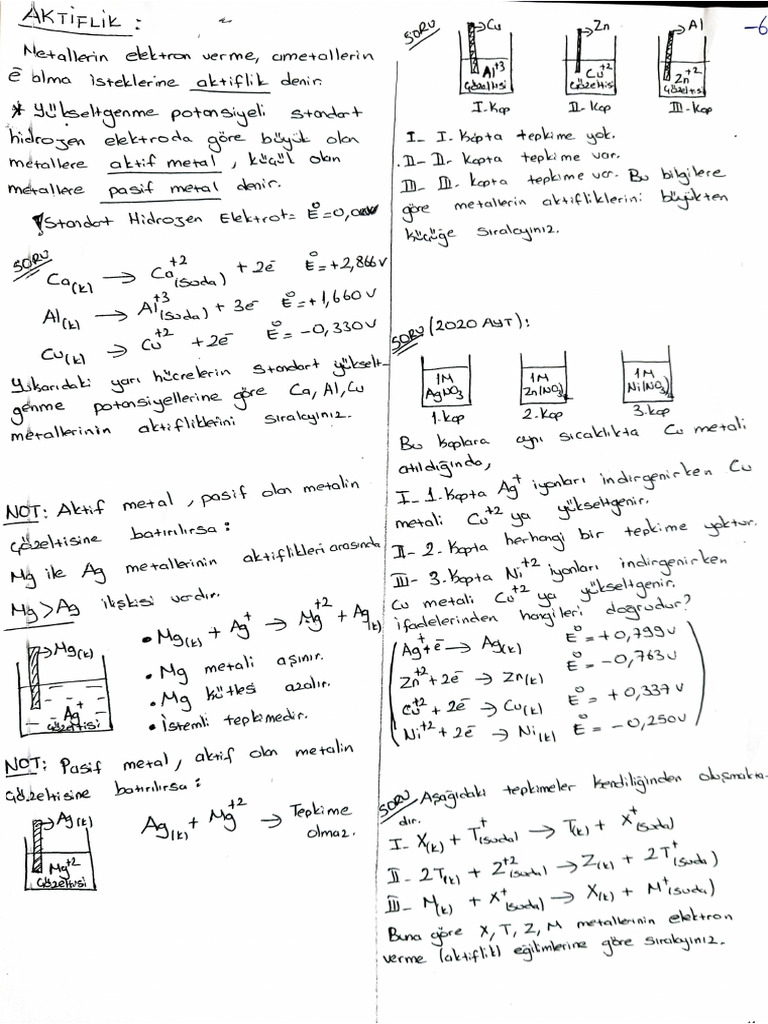 AKTİFLİK :
Metallerin elektron verme, ametallerin
ē alma isteklerine aktiflik denir.
* Yükseltgenme potansiyeli standart
hidrojen elektroda göre büyük olan
metallere aktif metal, küçük olan
metallere pasif metal denir.
Standart Hidrojen Elektrot= E°=0,00
SORU
Ca(k) → Ca+2(suda) + 2ē E°=+2,866V
Al(k) → Al+3(suda) + 3ē E°=+1,660V
Cu(k) → Cu+2 + 2ē E°=-0,330V
Yukarıdaki yarı hücrelerin standart yükselt-
genme potansiyellerine göre Ca, Al, Cu
metallerinin aktifliklerini sıralayınız.
NOT: Aktif metal, pasif olan metalin
çözeltisine batırılırsa:
Mg ile Ag metallerinin aktiflikleri arasında
Mg>Ag ilişkisi vardır.
• Mg(k) + Ag+ → Mg+2 + Ag(k)
→Mg(k)
• Mg metali aşınır.
• Mg kütlesi azalır.
• İstemli tepkimedir.
Ag+
çözeltisi
NOT: Pasif metal, aktif olan metalin
çözeltisine batırılırsa:
→Ag(k)
Ag(k) + Mg+2 → Tepkime
olmaz.
Mg+2
çözeltisi
-6
SORU
→Cu →Zn →Al
Al+3 çözeltisi Cu+2 çözeltisi Zn+2 çözeltisi
I-Kap II-Kap III-Kap
I- I. Kapta tepkime yok.
II- II. kapta tepkime var.
III- III. kapta tepkime var. Bu bilgilere
göre metallerin aktifliklerini büyükten
küçüğe sıralayınız.
SORU (2020 AYT):
1M AgNO3 1M Zn(NO3)2 1M Ni(NO3)2
1.kap 2.kap 3.kap
Bu kaplara aynı sıcaklıkta Cu metali
atıldığında,
I- 1. Kapta Ag+ iyonları indirgenirken Cu
metali Cu+2 ya yükseltgenir.
II- 2. Kapta herhangi bir tepkime yoktur.
III- 3. Kapta Ni+2 iyonları indirgenirken
Cu metali Cu+2 ya yükseltgenir.
ifadelerinden hangileri doğrudur?
Ag+ + ē → Ag(k) E°=+0,799V
Zn+2 + 2ē → Zn(k) E°= -0,763V
Cu+2 + 2ē → Cu(k) E°= +0,337V
Ni+2 + 2ē → Ni(k) E°= -0,250V
SORU Aşağıdaki tepkimeler kendiliğinden oluşmakta-
dır.
I- X(k) + T+(suda) → T(k) + X+(suda)
II- 2T(k) + Z+2(suda) → Z(k) + 2T+(suda)
III- M(k) + X+(suda) → X(k) + M+(suda)
Buna göre X, T, Z, M metallerinin elektron
verme (aktiflik) eğilimlerine göre sıralayınız.